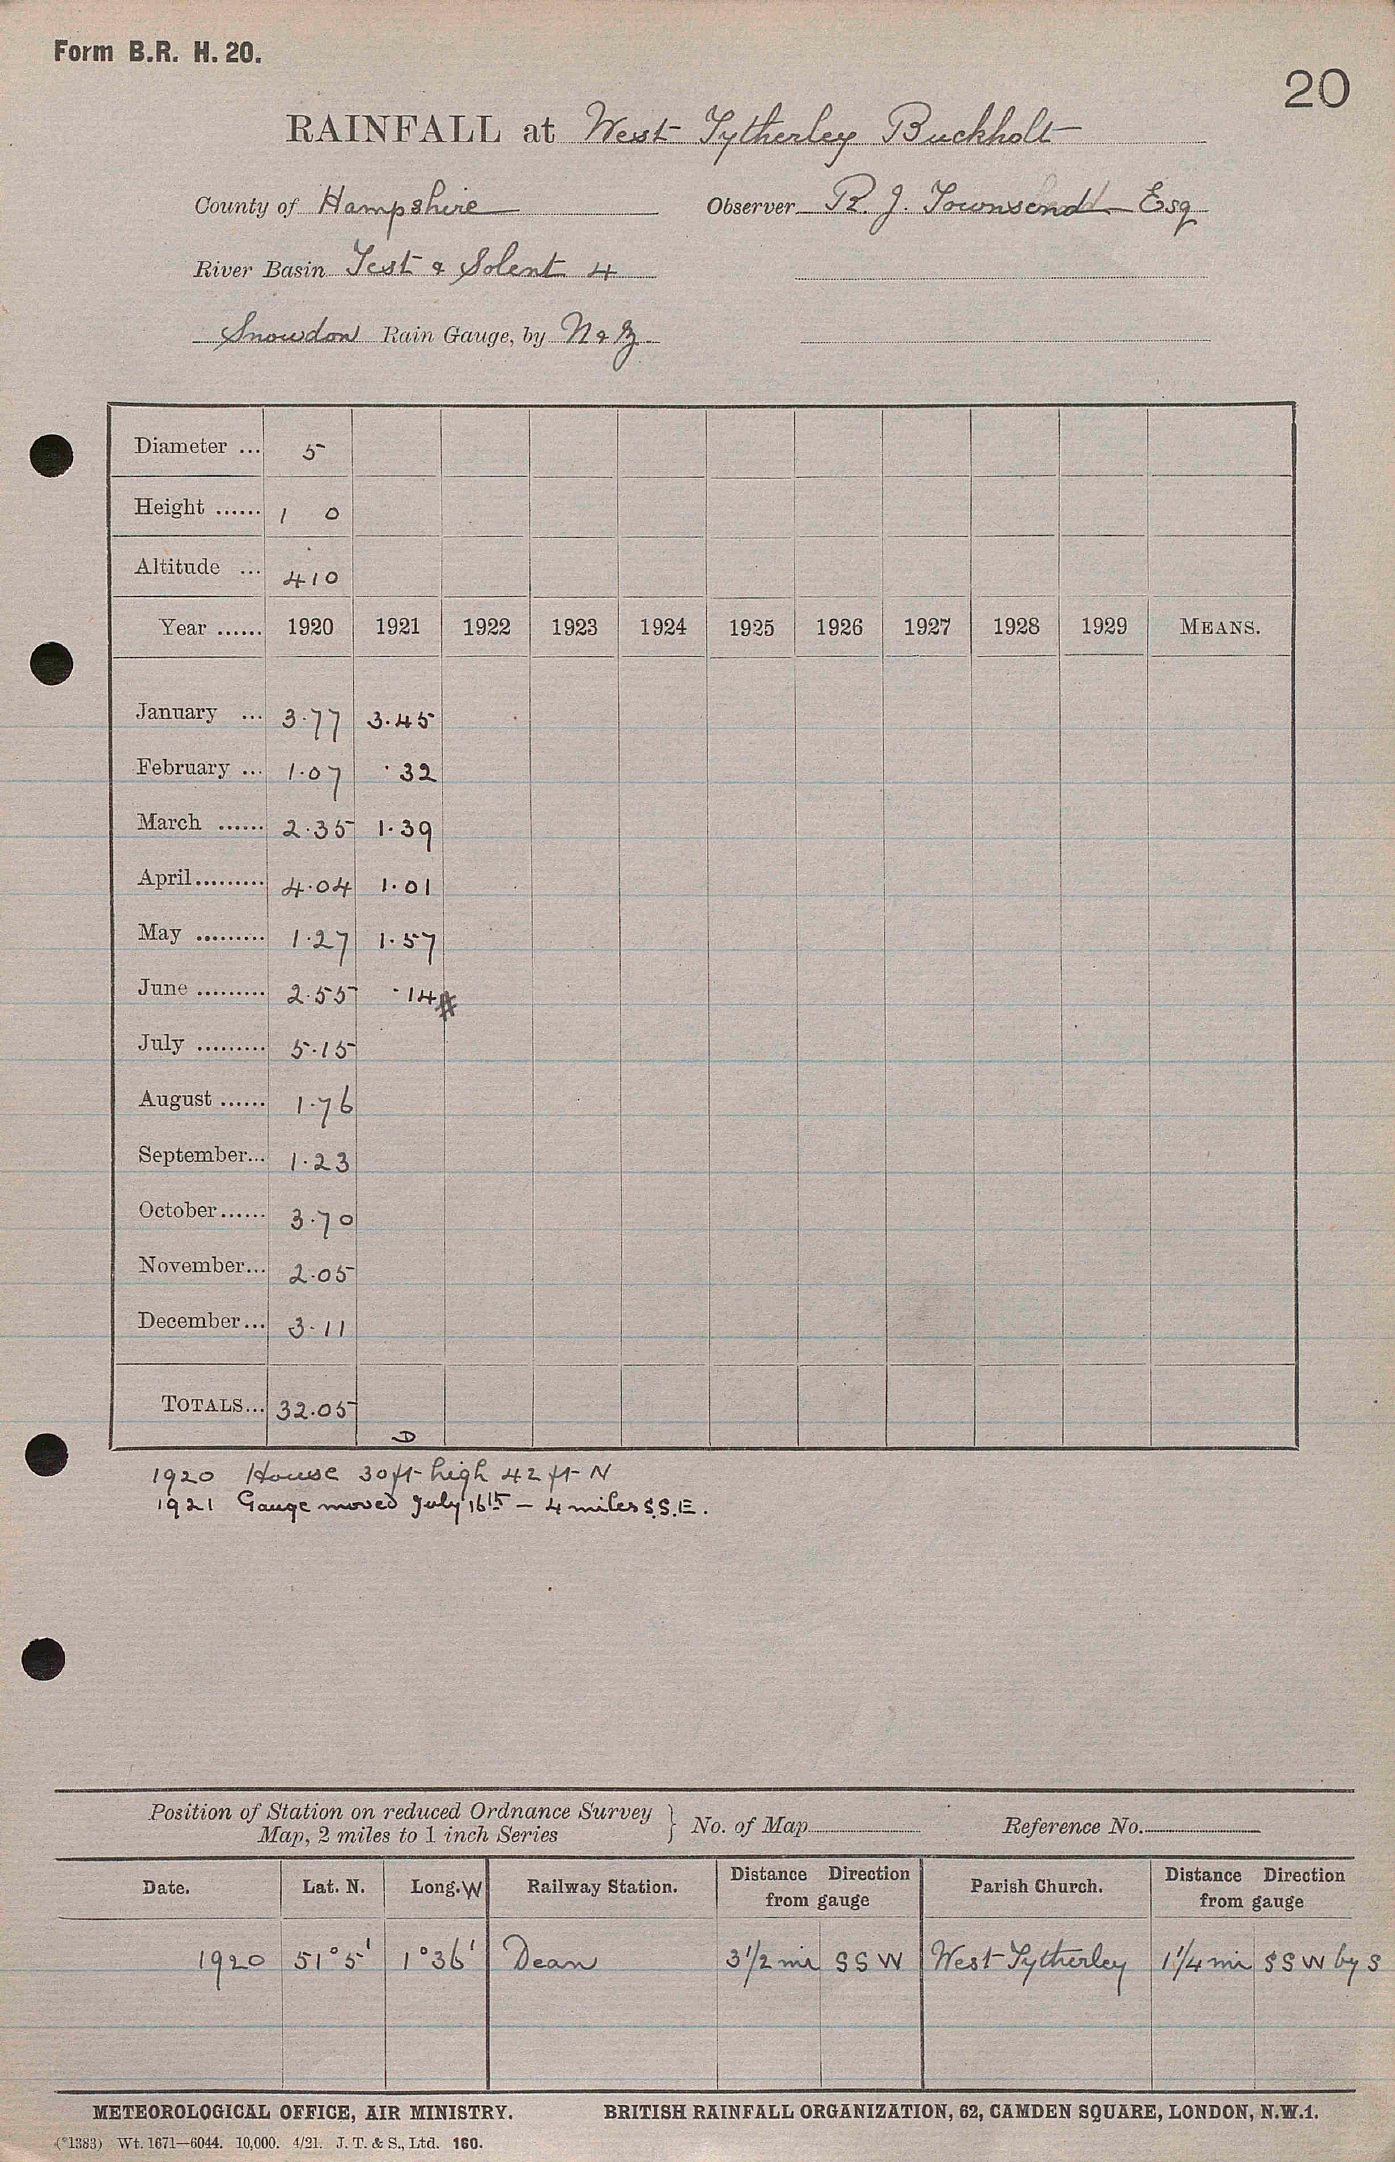 Form B.R. H. 20.
20
RAINFALL at West Tytherley Buckholt
County of Hampshire Observer R. J. Townsend Esq
River Basin Test & Solent 4
Snowdon Rain Gauge, by N & Z
Diameter ... 5
Height ...... 1 0
Altitude ... 410
Year ...... 1920 1921 1922 1923 1924 1925 1926 1927 1928 1929 MEANS.
January ... 3.77 3.45
February ... 1.07 .32
March ...... 2.35 1.39
April......... 4.04 1.01
May ......... 1.27 1.57
June ......... 2.55 .14#
July ......... 5.15
August ...... 1.76
September... 1.23
October...... 3.70
November... 2.05
December... 3.11
TOTALS... 32.05
D
1920 House 30 ft high 42 ft N
1921 Gauge moved July 16th – 4 miles S.S.E.
Position of Station on reduced Ordnance Survey
Map, 2 miles to 1 inch Series } No. of Map Reference No.
Date. Lat. N. Long. W Railway Station. Distance Direction from gauge Parish Church. Distance Direction from gauge
1920 51°5' 1°36' Dean 3 1/2 mi S S W West Tytherley 1 1/4 mi S S W by S
METEOROLOGICAL OFFICE, AIR MINISTRY. BRITISH RAINFALL ORGANIZATION, 62, CAMDEN SQUARE, LONDON, N.W.1.
(*1383) Wt. 1671—6044. 10,000. 4/21. J. T. & S., Ltd. 160.